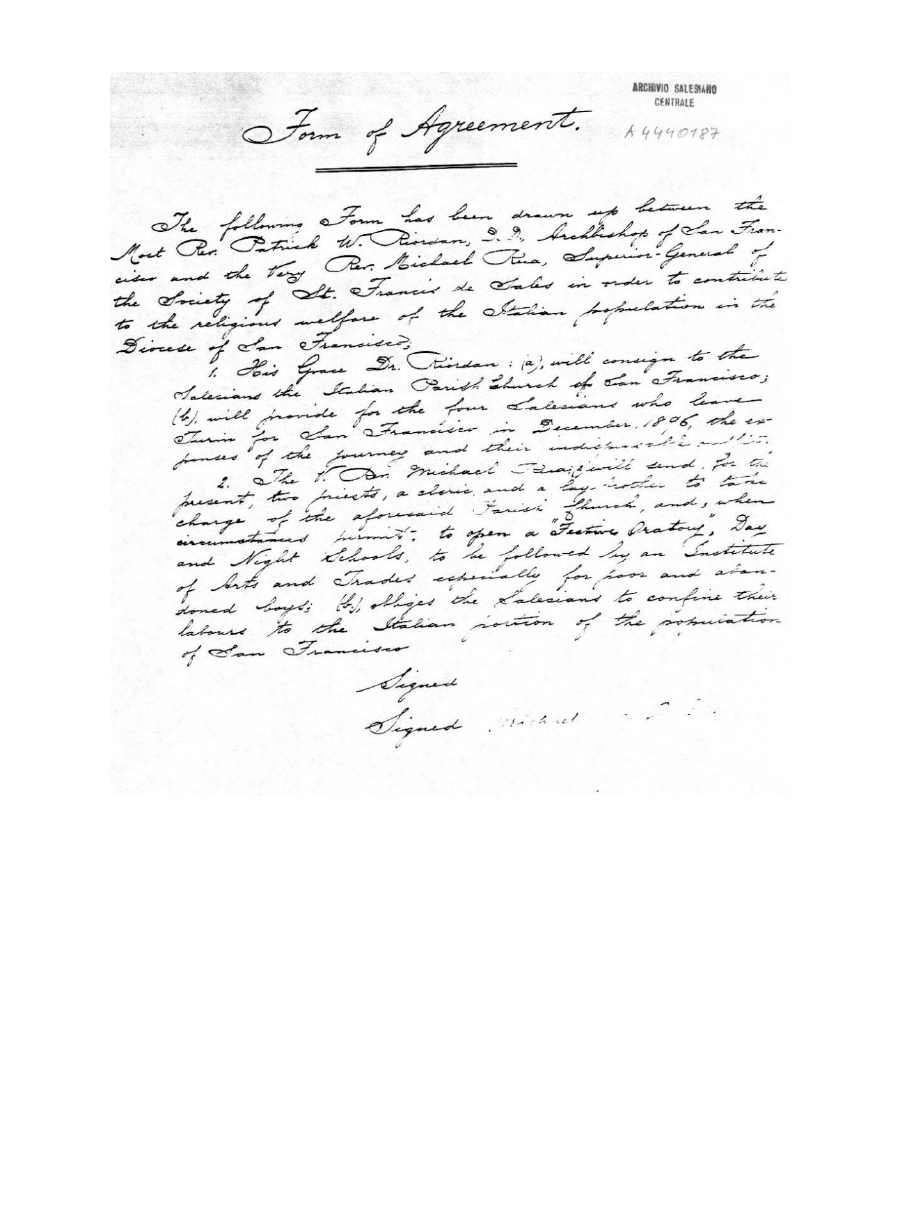 ARCHIVIO SALESIANO
CENTRALE
A4440187
Form of Agreement.
The following Form has been drawn up between the
Most Rev. Patrick W. Riordan, D.D., Archbishop of San Fran-
cisco and the Very Rev. Michael Rua, Superior-General of
the Society of St. Francis de Sales in order to contribute
to the religious welfare of the Italian population in the
Diocese of San Francisco;
1. His Grace Dr. Riordan: (a), will consign to the
Salesians the Italian Parish Church of San Francisco;
(b), will provide for the four Salesians who leave
Turin for San Francisco in December, 1896, the ex-
penses of the journey and their indispensable
2. The V. Rev. Michael Rua (a) will send, for the
present, two priests, a cleric, and a lay-brother to take
charge of the aforesaid Parish Church, and, when
circumstances permit, to open a "Festive Oratory", Day
and Night Schools, to be followed by an Institute
of Arts and Trades especially for poor and aban-
doned boys; (b), obliges the Salesians to confine their
labours to the Italian portion of the population
of San Francisco
Signed
Signed Michael